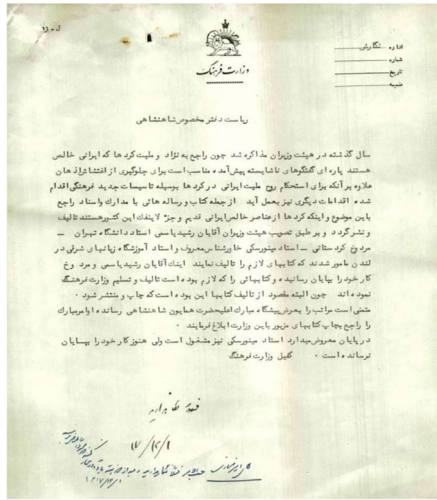 ل - زد
وزارت فرهنگ
اداره نگارش
شماره
تاریخ
ضمیمه
ریاست دفتر مخصوص شاهنشاهی
سال گذشته در هیئت وزیران مذاکره شد چون راجع به نژاد و ملیت کردها که ایرانی خالص
هستند پاره ای گفتگوهای ناشایسته پیش آمده مناسب است برای جلوگیری از اغتشاش اذهان
علاوه بر آنکه برای استحکام روح ملیت ایرانی در کردها بوسیله تاسیسات جدید فرهنگی اقدام
شده اقدامات دیگری نیز بعمل آید از جمله کتاب و رساله هائی با مدارک و اسناد راجع
باین موضوع و اینکه کردها از عناصر خالص ایرانی قدیم و جزء لاینفک این کشور هستند تالیف
و نشر گردد و بر طبق تصویب هیئت وزیران آقایان رشید یاسمی استاد دانشگاه تهران -
مردوخ کردستانی - استاد مینورسکی خاورشناس معروف و استاد آموزشگاه زبانهای شرقی در
لندن مامور شدند که کتابهای لازم را تالیف نمایند اینک آقایان رشید یاسمی و مردوخ
کار خود را بپایان رسانیده و کتابهائی را که لازم بوده است تالیف و تسلیم وزارت فرهنگ
نموده اند چون البته مقصود از تالیف کتابها این بوده است که چاپ و منتشر شود
متمنی است مراتب را بعرض پیشگاه مبارک اعلیحضرت همایون شاهنشاهی رسانده اوامر مبارک
را راجع بچاپ کتابهای مزبور باین وزارت ابلاغ فرمایند
در پایان معروض میدارد استاد مینورسکی نیز مشغول است ولی هنوز کار خود را بپایان
نرسانده است کفیل وزارت فرهنگ
۱۷/۱۲/۱